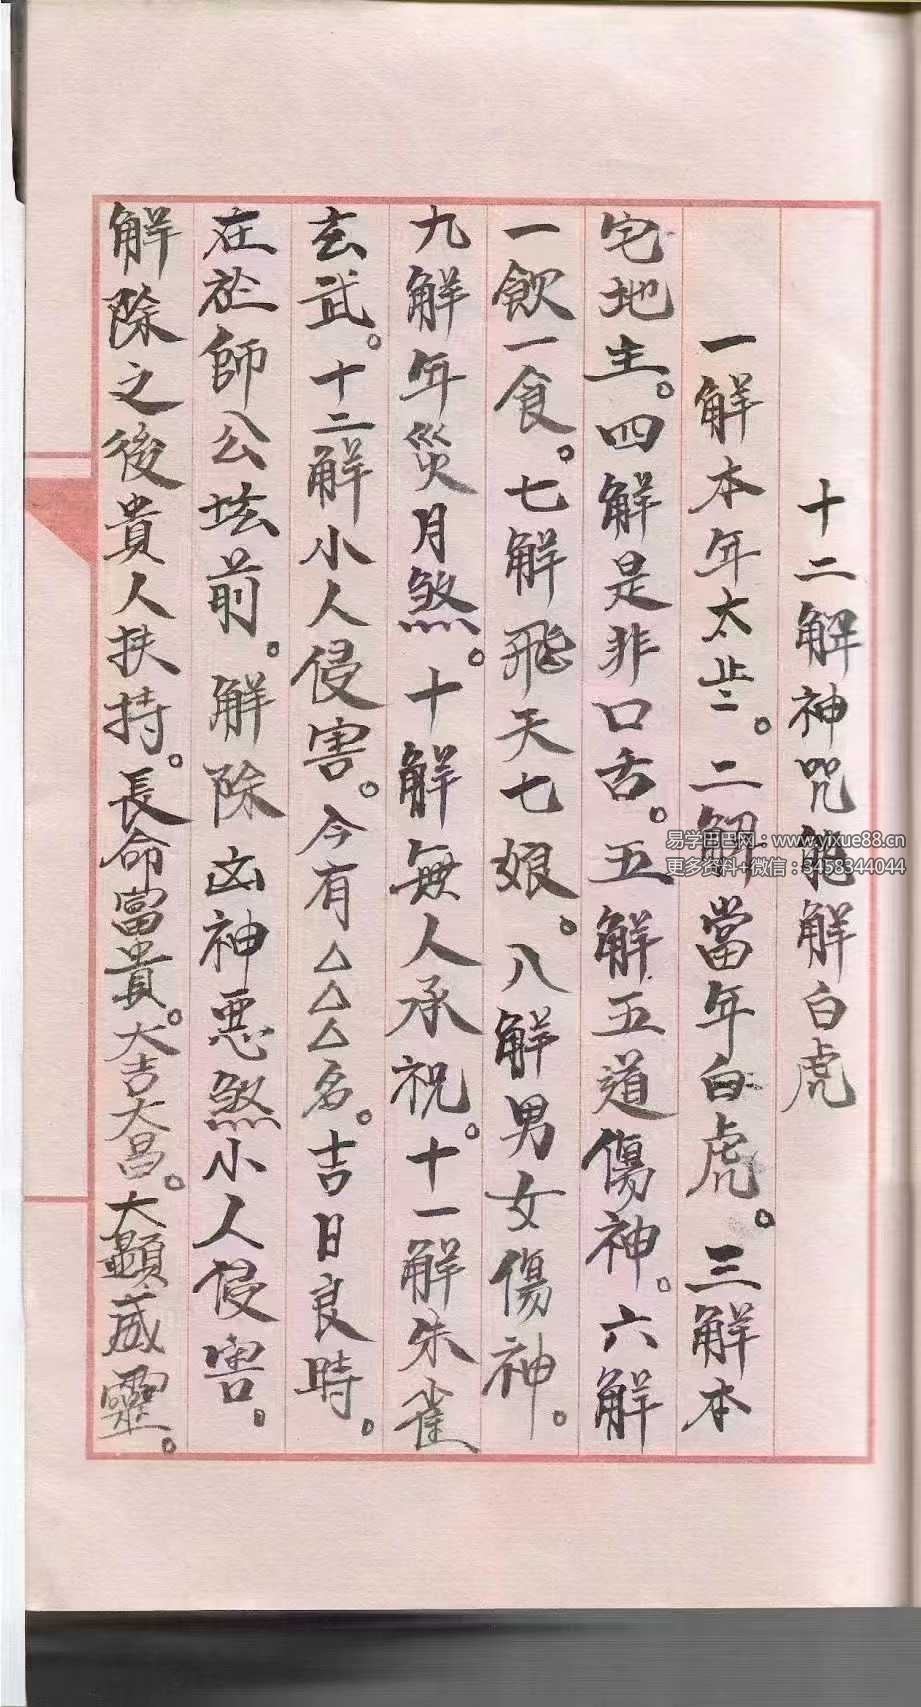 十二解神咒能解白虎
一解本年太歲。二解當年白虎。三解本
宅地主。四解是非口舌。五解五道傷神。六解
一飲一食。七解飛天七娘。八解男女傷神。
九解年災月煞。十解無人承祝。十一解朱雀
玄武。十二解小人侵害。今有△△△名。吉日良時。
在於師公坛前。解除凶神惡煞小人侵害。
解除之後貴人扶持。長命富貴。大吉大昌。大顯威靈。
易学巴巴网：www.yixue88.cn
更多资料+微信：3458344044